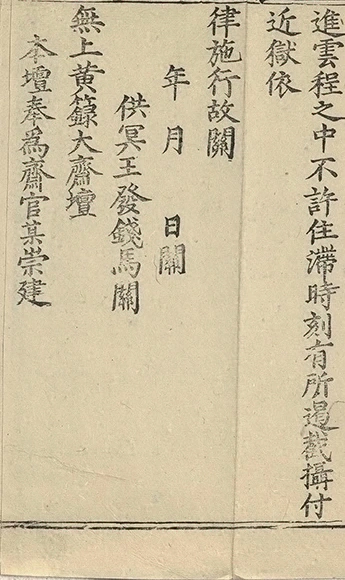 進雲程之中不許住滯時刻有所遏截攝付
近獄依
律施行故關
年月日關
供冥王發錢馬關
無上黃籙大齋壇
本壇奉為齋官某崇建